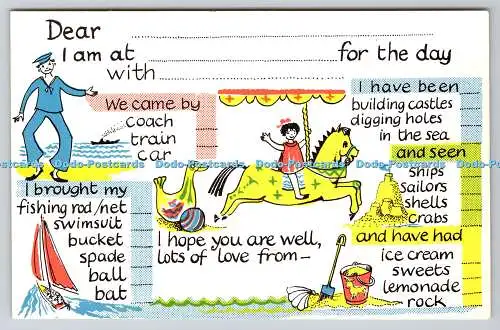 Dear
I am at for the day
with
We came by
coach
train
car
I have been
building castles
digging holes
in the sea
and seen
ships
sailors
shells
crabs
I brought my
fishing rod/net
swimsuit
bucket
spade
ball
bat
I hope you are well,
lots of love from—
and have had
ice cream
sweets
lemonade
rock
Dodo-Postcards Dodo-Postcards Dodo-Postcards Dodo-Postcards